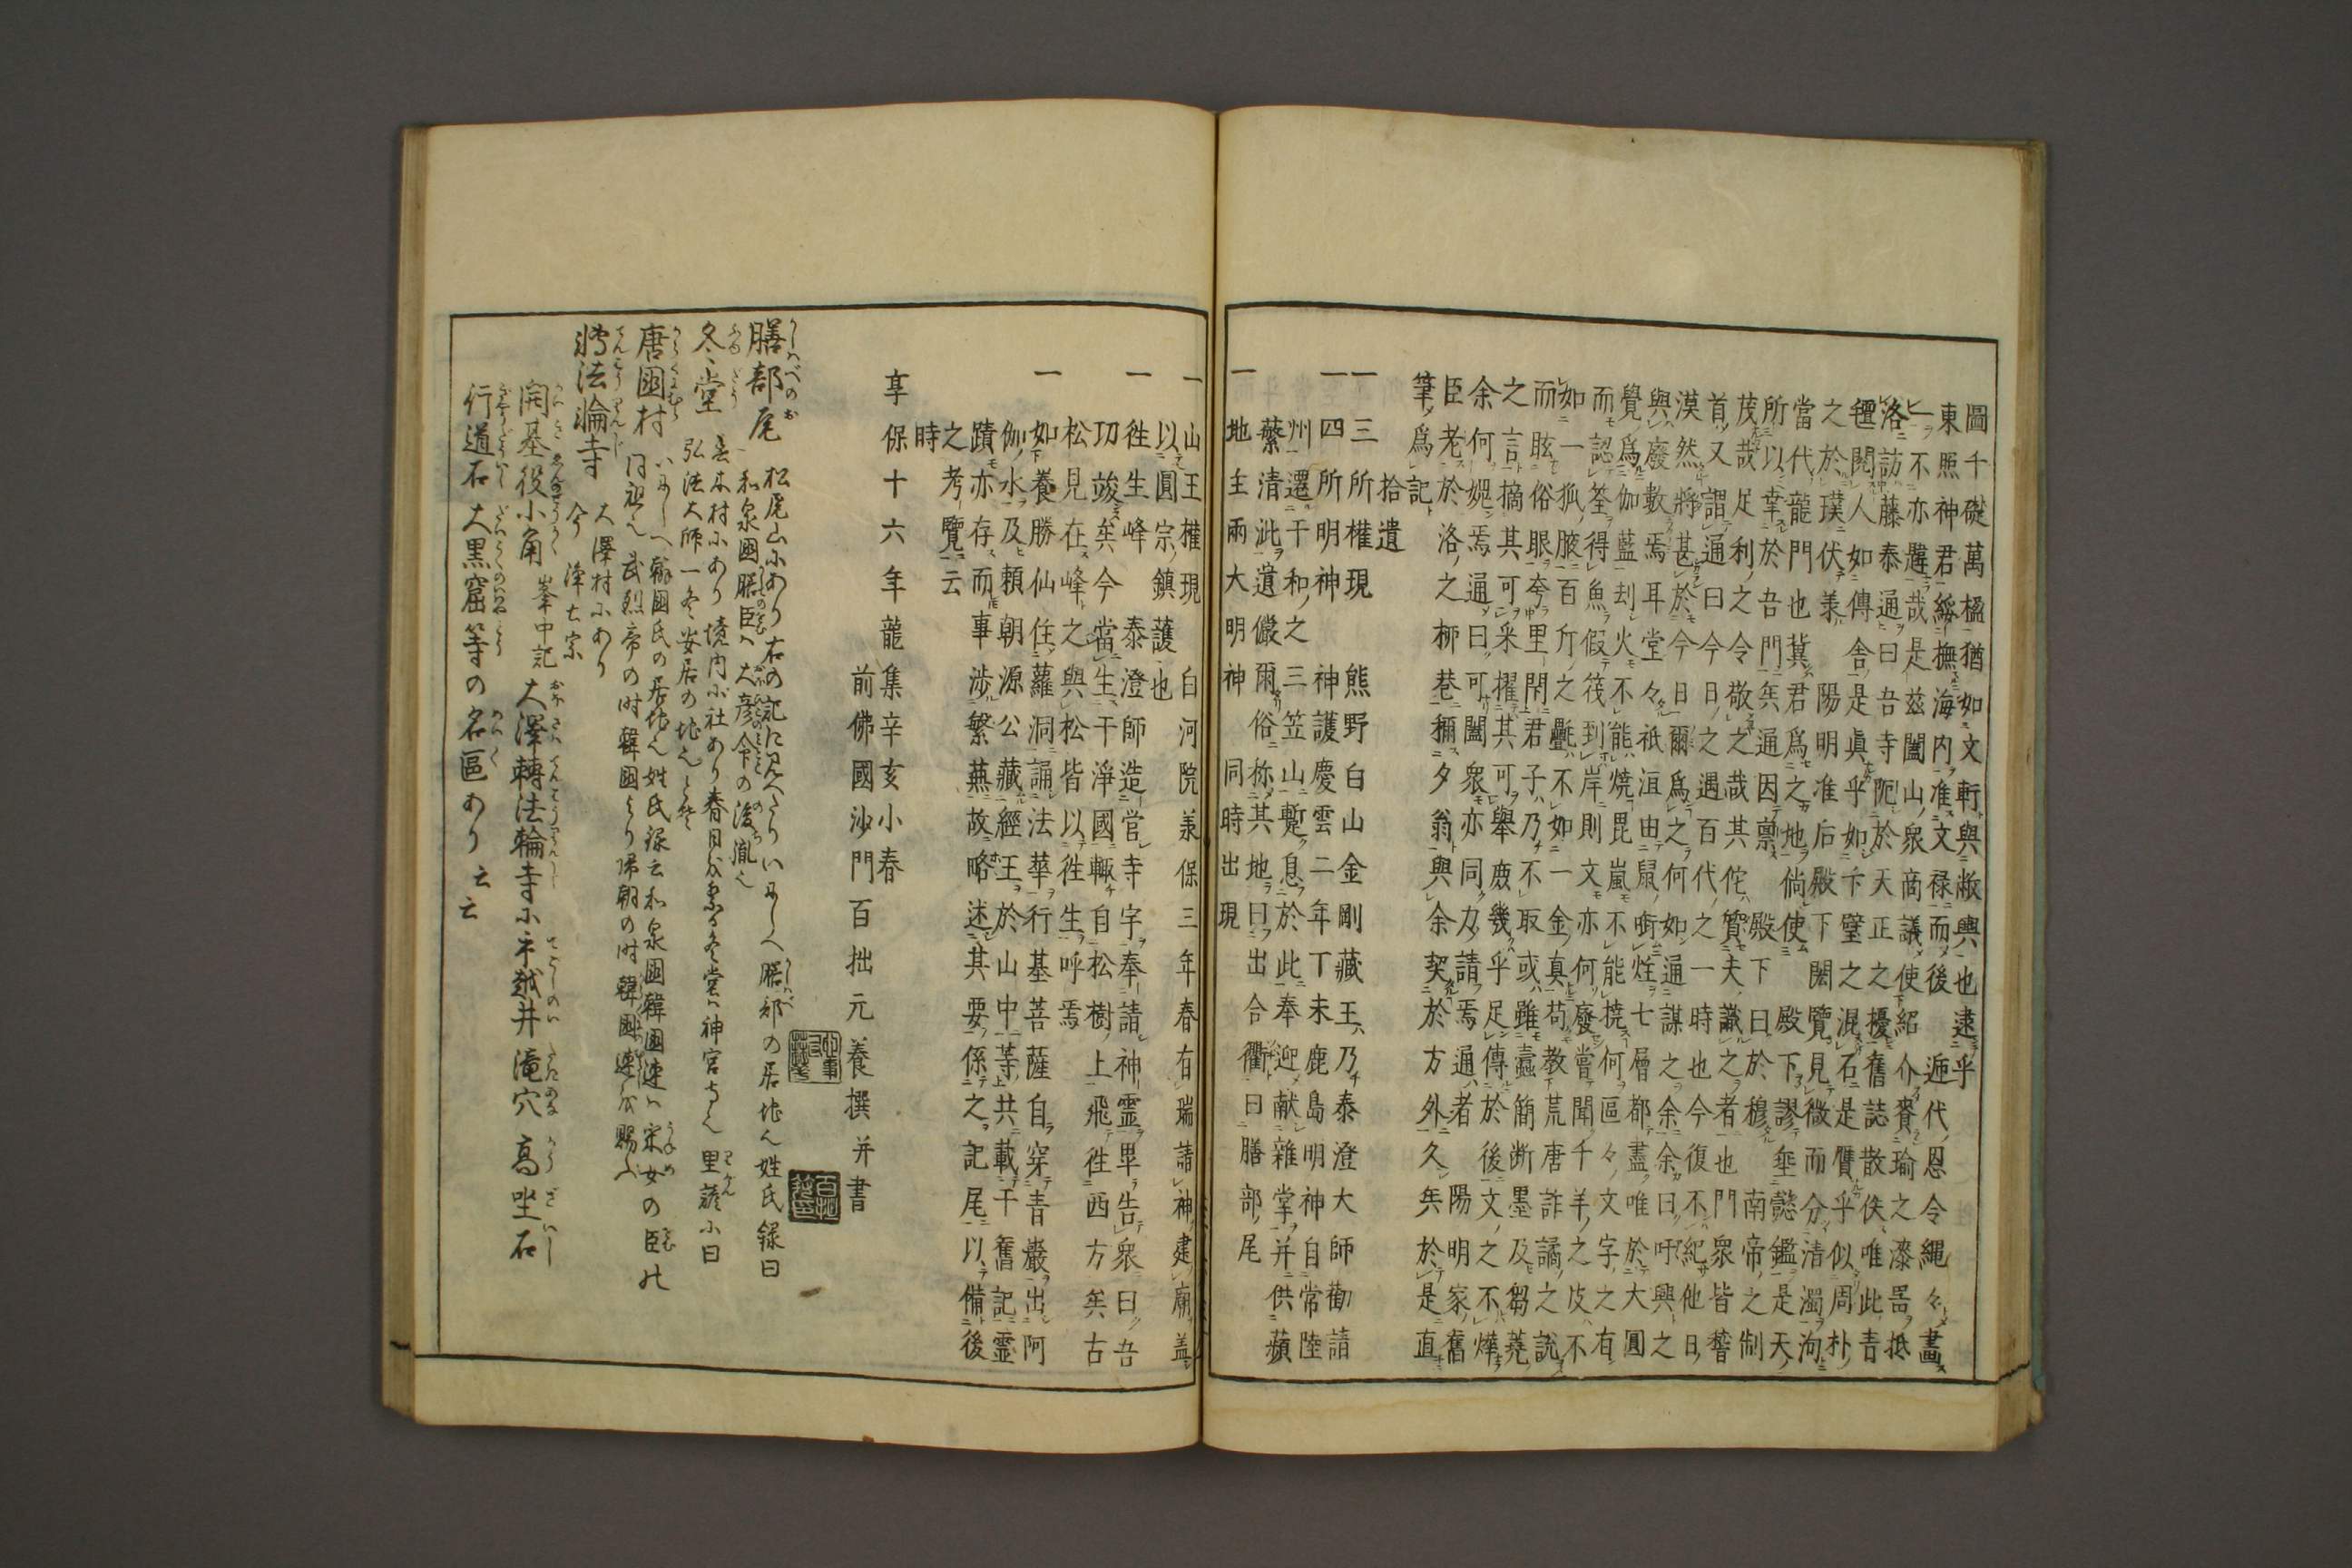 圖千礎萬楹猶如文軒與敝輿也逮乎
東照神君綏撫海内准文禄而後迊代恩令繩々畫
一不亦韙哉是茲闔山衆商議使紹介賚瑜之漆畧抵
洛訪藤泰通曰吾寺阨於天正之擾舊誌散佚唯此青
氊閲人如傳舎是眞乎如卞璧之混石是贋乎似周朴
之於璞伏羕陽明准后殿下閎覽見微而分清濁洵
當代龍門也冀君爲之地倘使殿下謬埀懿鑑是天
所以幸於吾門矣通因禀殿下曰於穆南帝之制
茂哉足利之令敬之哉其佗贊夫讖之者也門衆皆㬱
首又謂通曰今日之遇百代之一時也今復不紀他日
漠然將甚於今日爾爲之何如通謀之余余曰吁興之
與廢數焉耳堂々祇洹由鼠銜炷七層都盡唯於大圓
覺爲伽藍刦火不能燒毘嵐不能撓何區々文字之有
而認筌得魚假筏到岸則文亦何廢嘗聞千羊之皮不
如一狐腋百斤之氎不如一金真苟教荒唐詐譎之説
而眩俗眼夸里閈君子乃不取或雖蠹簡断墨及芻蕘
之言摘其可采擢其可舉庶幾乎足傳於後文之不燁
余何媿焉通曰可闔衆亦同力請焉通者陽明家舊
臣老於洛之柳巷稱夕翁與余契於方外久矣於是直
筆爲記
拾遺
一三所權現 熊野白山金剛藏王乃泰澄大師勸請
一四所明神 神護慶雲二年丁未鹿島明神自常陸
州遷于和之三笠山蹔息於此奉迎献雜掌并供蘋
蘩清泚遺儼爾俗称其地曰出合衢曰膳部尾
一地主兩大明神 同時出現
一山王權現 白河院羕保三年春有瑞請神建廟盖
以圓宗鎮護也
一徃生峰 泰澄師造官寺字奉請神霊畢告衆曰吾
功竣矣今當生于淨國輙自松樹上飛徃西方矣古
松見在峰之與松皆以徃生呼焉
一如養勝仙住蘿洞誦法華行基菩薩自穿青巖出阿
伽水及頼朝源公藏經王於山中等共載于舊記霊
蹟亦存而事渉繁蕪故略述其要係之記尾以備後
之考覽云
時
享保十六年龍集辛亥小春
前佛國沙門百拙元養撰并書
膳部尾 松尾山にあり右の記に見へたりいにしへ膳部の居地也姓氏録曰
和泉國膳臣ハ大彦命の後胤也
冬堂 春木村にあり境内に社あり春日を祭る冬堂ハ神宮寺也里諺に曰
弘法大師一冬安居の地也とぞ
唐國村 いにしへ韓國氏の居地也姓氏録云和泉國韓國連ハ采女の臣
同祖也武烈帝の時韓國より帰朝の時韓國連を賜ふ
轉法輪寺 大澤村にあり
今浄土宗
開基役小角 峯中記 大澤轉法輪寺に手越井滝穴 高坐石
行道石 大黒窟等の名區あり云云